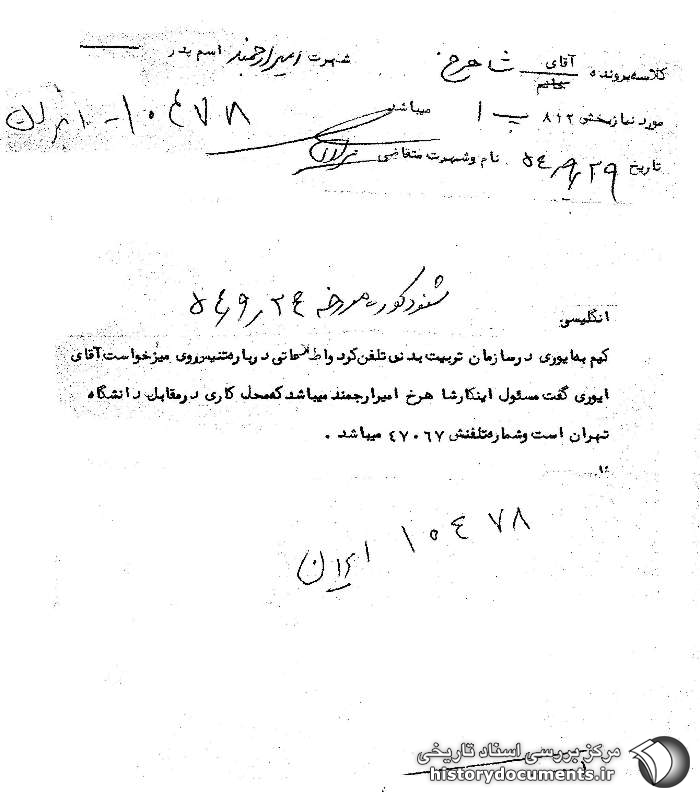 کلاسه پرونده آقای خانم شاهرخ شهرت امیرارجمند اسم پدر
مورد نیاز بخش ۸۱۲ پ ا میباشد ۱۰۴۷۸ -
تاریخ ۵۴٫۹٫۲۹ نام و شهرت متقاضی
شنود مورخه ۵۴٫۹٫۲۴
انگلیسی
کیم به ایوری در سازمان تربیت بدنی تلفن کرد و اطلاعاتی درباره تنیس روی میز خواست آقای
ایوری گفت مسئول اینکار شا هرخ امیرارجمند میباشد که محل کاری در مقابل دانشگاه
تهران است و شماره تلفنش ۴۷۰۶۷ میباشد .
۱۰۴۷۸ ایران
مرکز بررسی اسناد تاریخی
historydocuments.ir